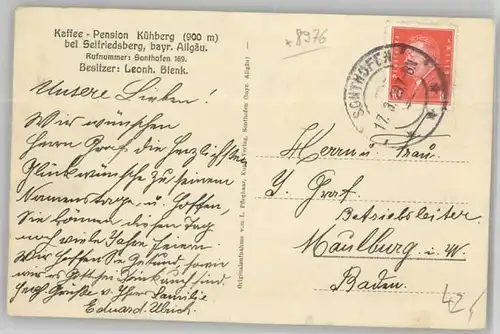 Kaffee - Pension Kühberg (900 m)
bei Seifriedsberg, bayr. Allgäu.
Rufnummer: Sonthofen 169.
Besitzer: Leonh. Bienk.
Unsere Lieben!
Wir wünschen
Herrn Graf die herzlichsten
Glückwünsche zu seinem
Namenstage u. hoffen,
Sie können diesen Tag
noch viele Jahre feiern.
Wir hoffen Sie Gesund sowie
wir es Gott sei Dank auch sind.
Herzl. Grüße v. Ihrer Familie
Eduard Ulrich.
Originalaufnahme von L. Verlag, Sonthofen (bayr. Allgäu)
8976
SONTHOFEN
17.3.
Herrn u. Frau
J. Graf
Betriebsleiter
Maulburg i. W.
Baden.
42